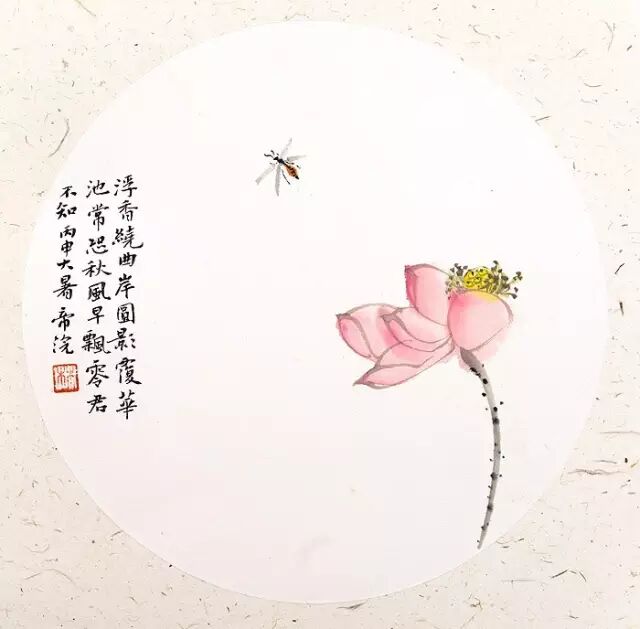 浮香繞曲岸圓影覆華
池常恐秋風早飄零君
不知丙申大暑帝浣